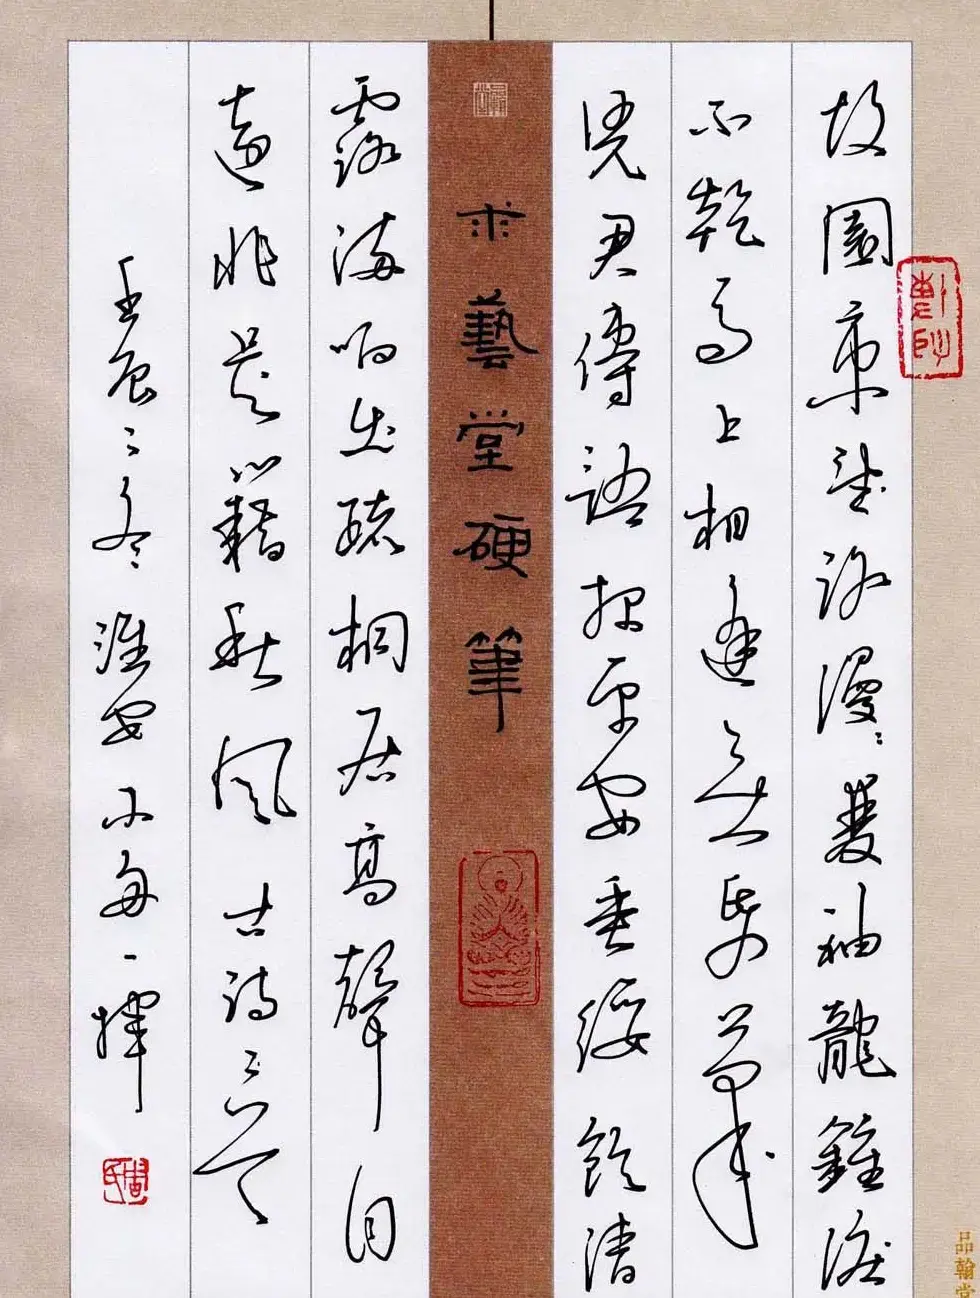 故園東望路漫〻雙袖龍鍾淚
不乾馬上相逢無紙筆
凭君傳語報平安垂緌飲清
求藝堂硬筆
露流响出疏桐居高聲自
遠非是藉秋風 古詩二首
壬辰之冬淮安小舟一揮
品翰堂